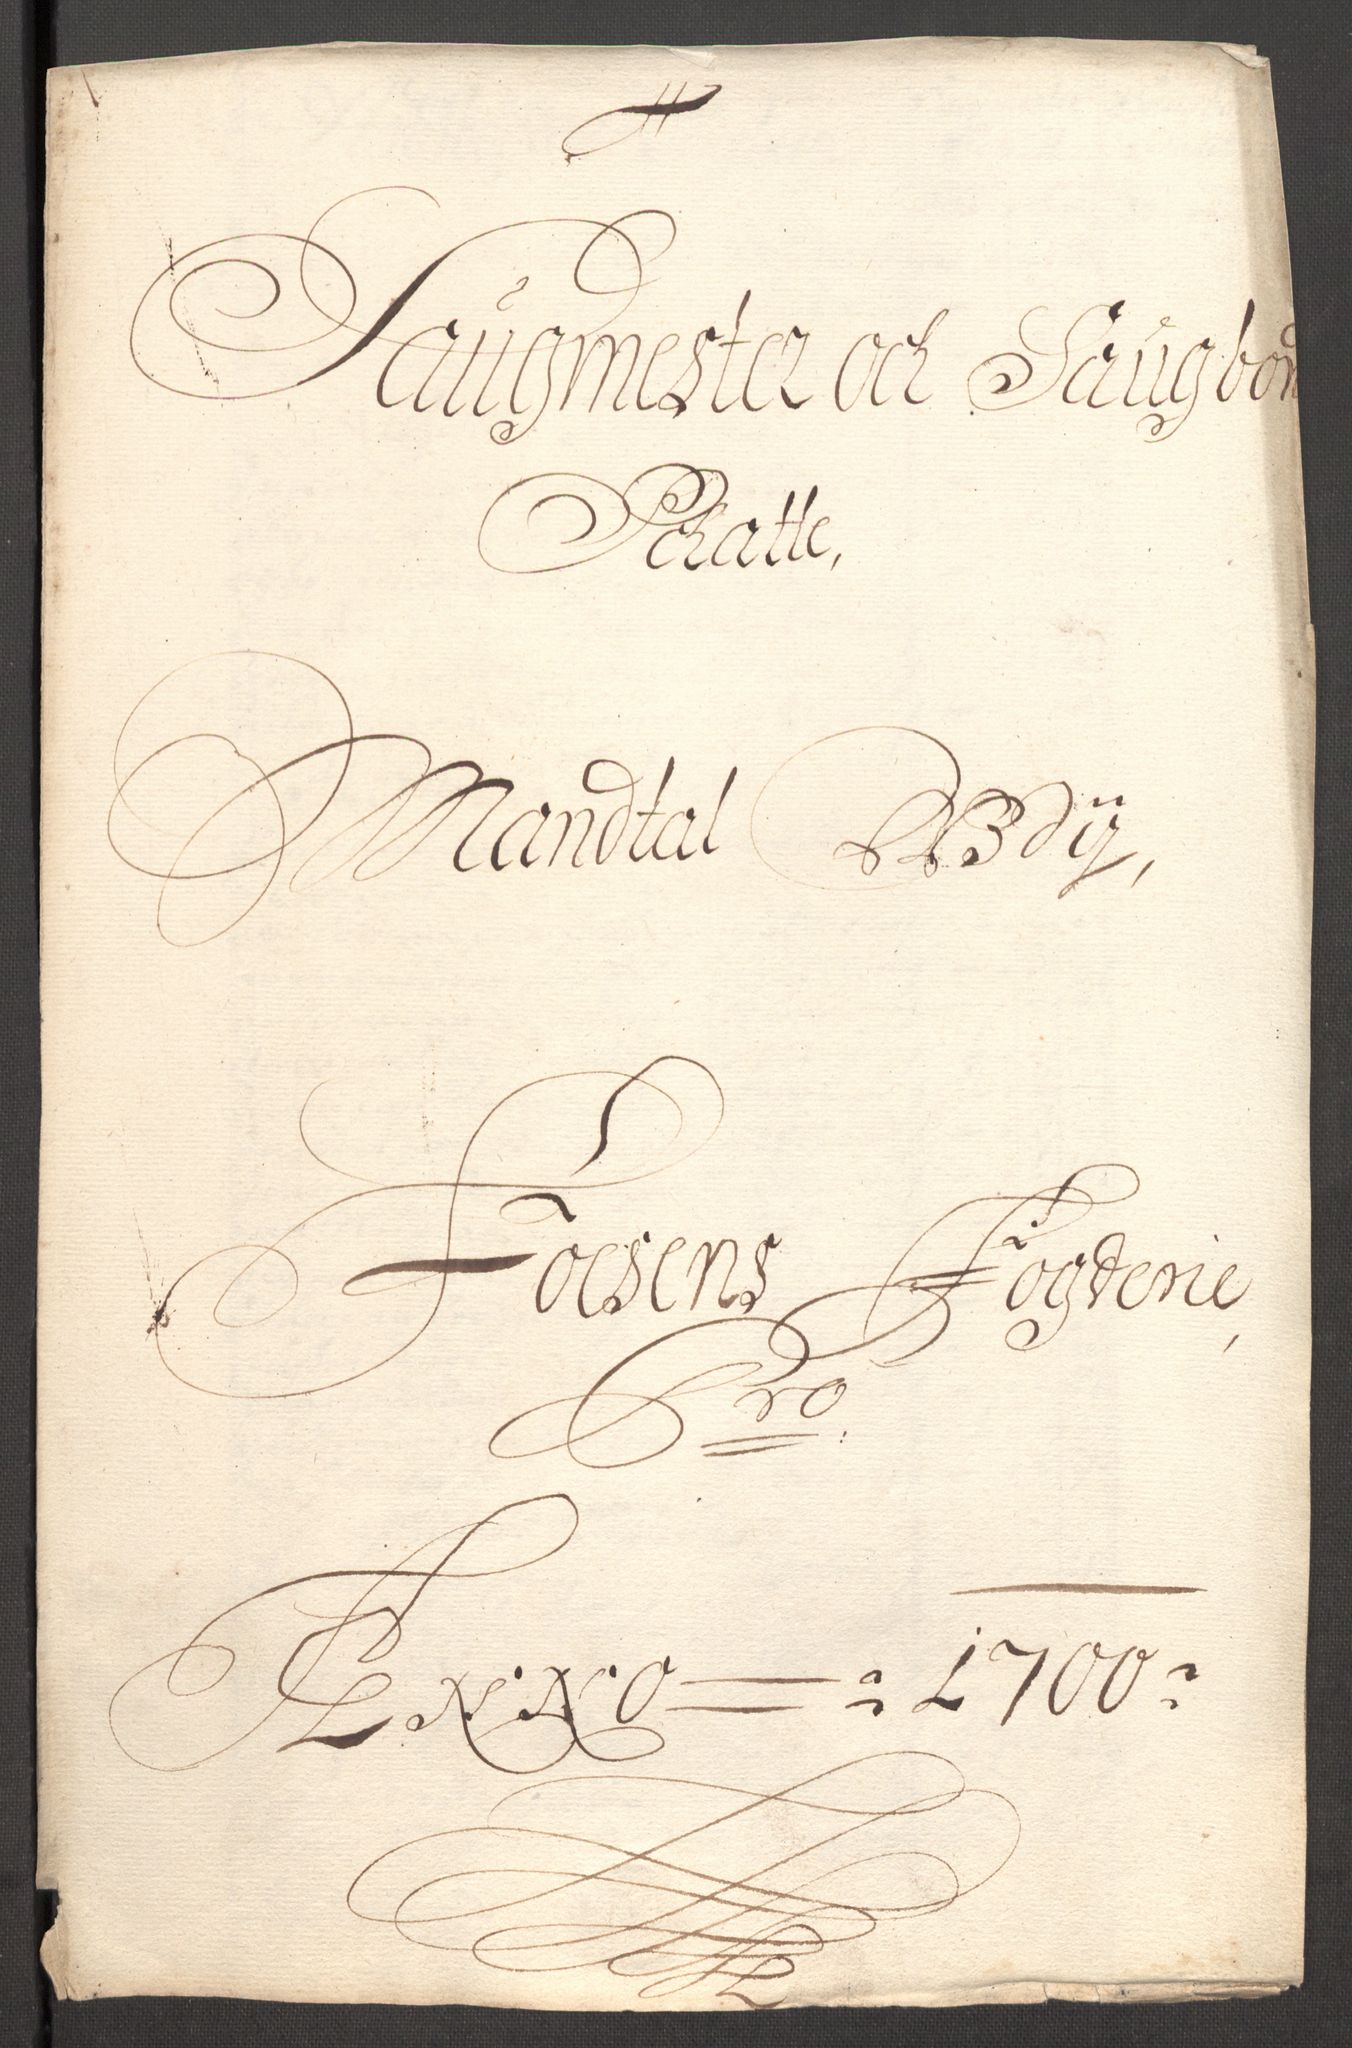 Saugmester och Saugbon
Schatte,
Mandtal
Foesens Fogderie,
Pro.
Anno = : 1700 :